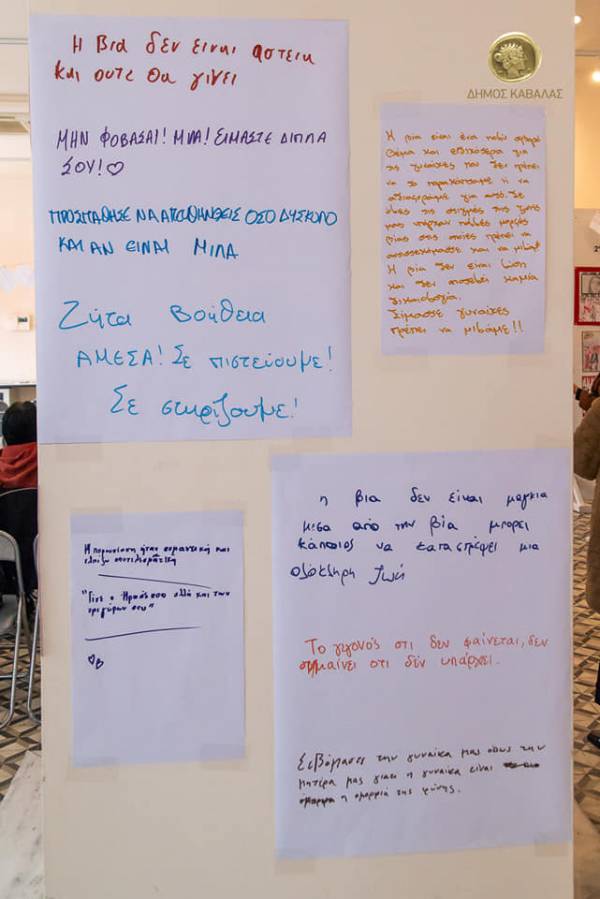 Η βια δεν ειναι αστεια
και ουτε θα γινει
ΜΗΝ ΦΟΒΑΣΑΙ! ΜΙΛΑ! ΕΙΜΑΣΤΕ ΔΙΠΛΑ
ΣΟΥ!♡
ΠΡΟΣΠΑΘΗΣΕ ΝΑ ΑΠΕΥΘΗΝΘΕΙΣ ΟΣΟ ΔΥΣΚΟΛΟ
ΚΑΙ ΑΝ ΕΙΝΑΙ ΜΙΛΑ
Ζήτα βοήθεια
ΑΜΕΣΑ! Σε πιστεύουμε!
Σε στηρίζουμε!
ΔΗΜΟΣ ΚΑΒΑΛΑΣ
Η βία είναι ένα πολύ σοβαρό
θέμα και ειδικότερα για
τις γυναίκες που δεν πρέπει
να το παρακάμπτουμε ή να
αδιαφορούμε για αυτό. Σε
όλες τις στιγμές της ζωής
μας υπάρχουν πολλές μορφές
βίας στις οποίες πρέπει να
και να μιλάμε!
Η βία δεν είναι λύση
και δεν αποτελεί καμία
δικαιολογία.
Είμαστε γυναίκες
πρέπει να μιλάμε!!
Η παρουσίαση ήταν σημαντική και
ελπίζω αποτελεσματική
"Γίνε ο ήρωάς σου αλλά και των
τριγύρων σου"
♡
η βια δεν είναι μαγκια
μεσα από την βία μπορει
κάποιος να καταστρέψει μια
ολόκληρη ζωή
Το γεγονός οτι δεν φαίνεται, δεν
σημαίνει οτι δέν υπάρχει.
Σεβόμαστε την γυναίκα μας οπως την
μητερα μας γιατι η γυναίκα είναι
η ομορφιά της φύσης.